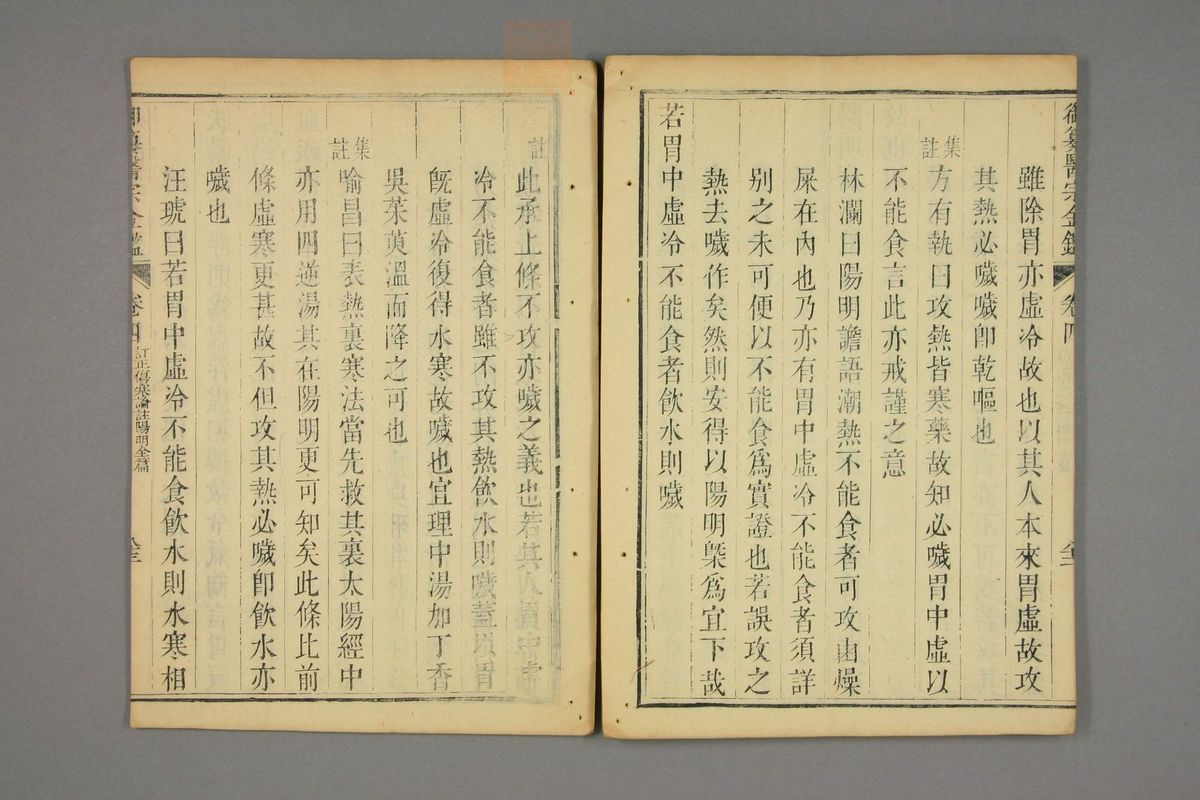 御纂醫宗金鑑 卷四
雖除胃亦虛冷故也以其人本來胃虛故攻
其熱必噦噦卽乾嘔也
集註
方有執曰攻熱皆寒藥故知必噦胃中虛以
不能食言此亦戒謹之意
林瀾曰陽明譫語潮熱不能食者可攻由燥
屎在內也乃亦有胃中虛冷不能食者須詳
别之未可便以不能食爲實證也若誤攻之
熱去噦作矣然則安得以陽明槩爲宜下哉
若胃中虛冷不能食者飮水則噦
註
此承上條不攻亦噦之義也若其人胃中虛
冷不能食者雖不攻其熱飮水則噦蓋以胃
旣虛冷復得水寒故噦也宜理中湯加丁香
吳茱萸溫而降之可也
集註
喻昌曰表熱裏寒法當先救其裏太陽經中
亦用四逆湯其在陽明更可知矣此條比前
條虛寒更甚故不但攻其熱必噦卽飮水亦
噦也
汪琥曰若胃中虛冷不能食飮水則水寒相
御纂醫宗金鑑 卷四 訂正傷寒論註陽明全篇